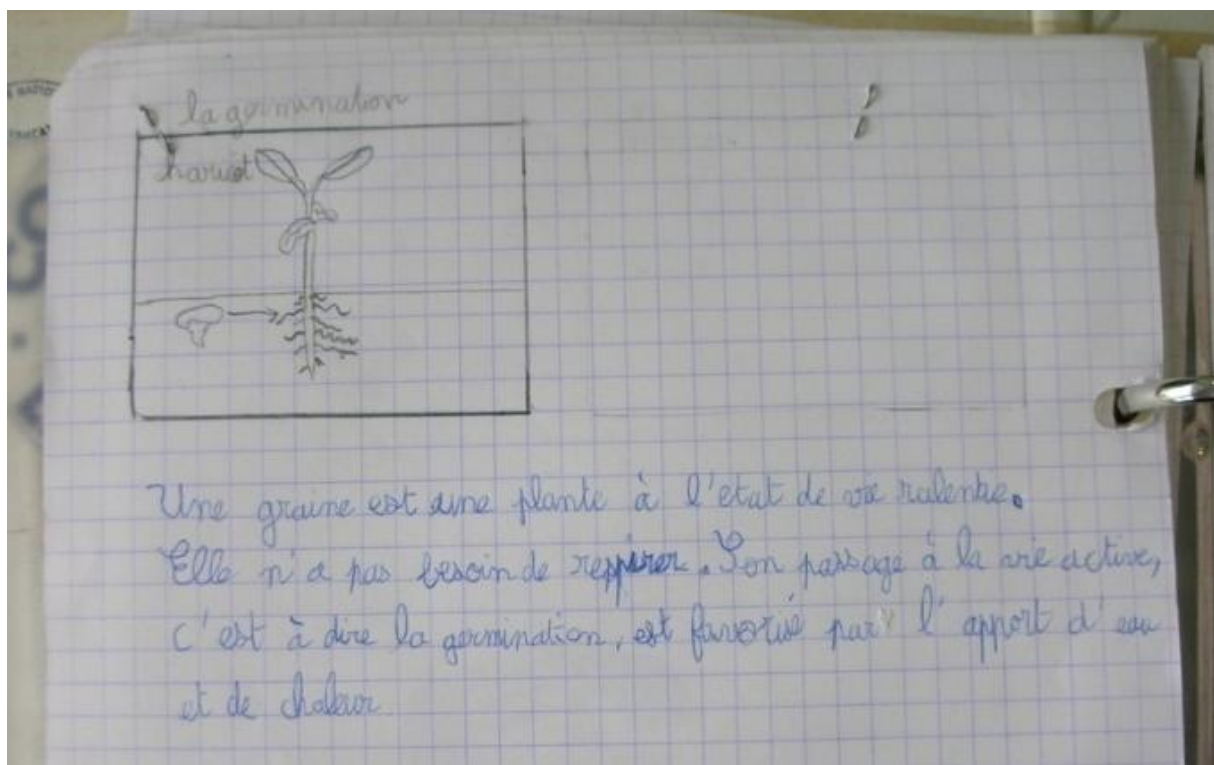 la germination
haricot
Une graine est une plante à l'etat de vie ralentie.
Elle n'a pas besoin de respirer. Son passage à la vie active,
c'est à dire la germination, est favorisé par l'apport d'eau
et de chaleur